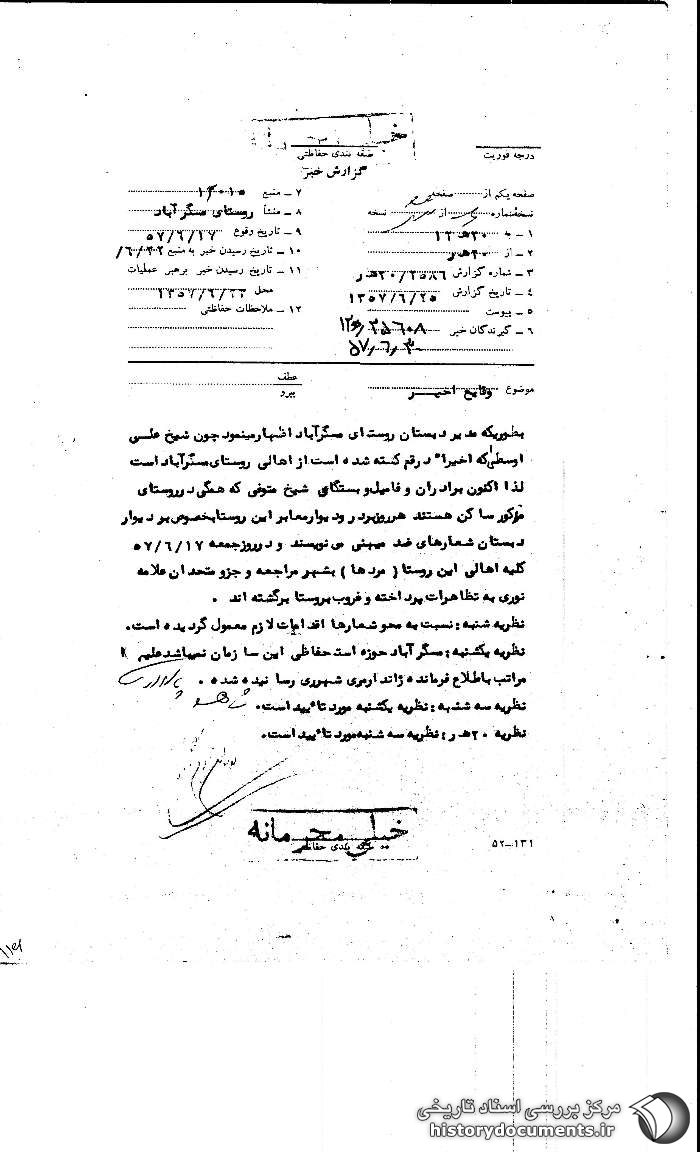 خیلی
طبقه بندی حفاظتی
گزارش خبر
درجه فوریت
صفحه یکم از صفحه
نسخه شماره از نسخه
۱ ـ به ۱۲ هـ ۲۰
۲ ـ از ۲۰ هـ ر
۳ ـ شماره گزارش ۲۰/۲۵۸۶ هـ ر
۴ ـ تاریخ گزارش ۱۳۵۷/۶/۲۵
۵ ـ پیوست
۶ ـ گیرندگان خبر
۷ ـ منبع ۱۴۰۱۵
۸ ـ منشأ روستای مسگرآباد
۹ ـ تاریخ وقوع ۵۷/۶/۱۷
۱۰ ـ تاریخ رسیدن خبر به منبع
۱۱ ـ تاریخ رسیدن خبر برهبر عملیات
محل
۱۲ ـ ملاحظات حفاظتی
موضوع وقایع اخیر
عطف
پیرو
بطوریکه مدیر دبستان روستای مسگرآباد اظهارمینمود چون شیخ علی
اوسطی که اخیرا" درقم کشته شده است از اهالی روستای مسگرآباد است
لذا اکنون برادران و فامیل و بستگان شیخ متوفی که همگی در روستای
مزکور ساکن هستند هرروز بر در و دیوار معابر این روستا بخصوص بر دیوار
دبستان شعارهای ضد میهنی می نویسند و در روز جمعه ۵۷/۶/۱۷
کلیه اهالی این روستا ( مردها ) بشهر مراجعه و جزو متحدان علامه
نوری به تظاهرات پرداخته و غروب بروستا برگشته اند .
نظریه شنبه : نسبت به محو شعارها اقدامات لازم معمول گردیده است.
نظریه یکشنبه : مسگرآباد حوزه استحفاظی این سازمان نمیباشد علیهذا
مراتب باطلاع فرمانده ژاندارمری شهرری رسانیده شده .
نظریه سه شنبه : نظریه یکشنبه مورد تائید است.
نظریه ۲۰ هـ ر : نظریه سه شنبه مورد تائید است.
خیلی محرمانه
طبقه بندی حفاظتی
۵۲ـ۱۳۱
مرکز بررسی اسناد تاریخی
historydocuments.ir